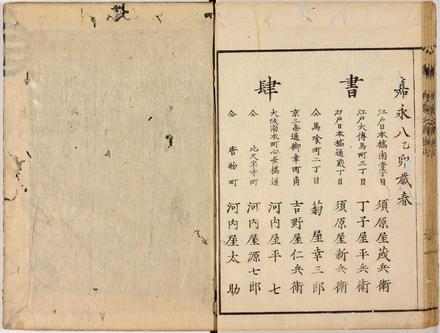 嘉永八乙卯歳春
書肆
江戸日本橋南壹丁目 須原屋茂兵衛
江戸大傳馬町二丁目 丁子屋平兵衛
江戸日本橋通貳丁目 須原屋新兵衛
仝馬喰町二丁目 菊屋幸三郎
京三条通御幸町角 吉野屋仁兵衛
大阪南本町心斎橋通 河内屋平七
仝北久宝寺町 河内屋源七郎
仝 町 河内屋太助